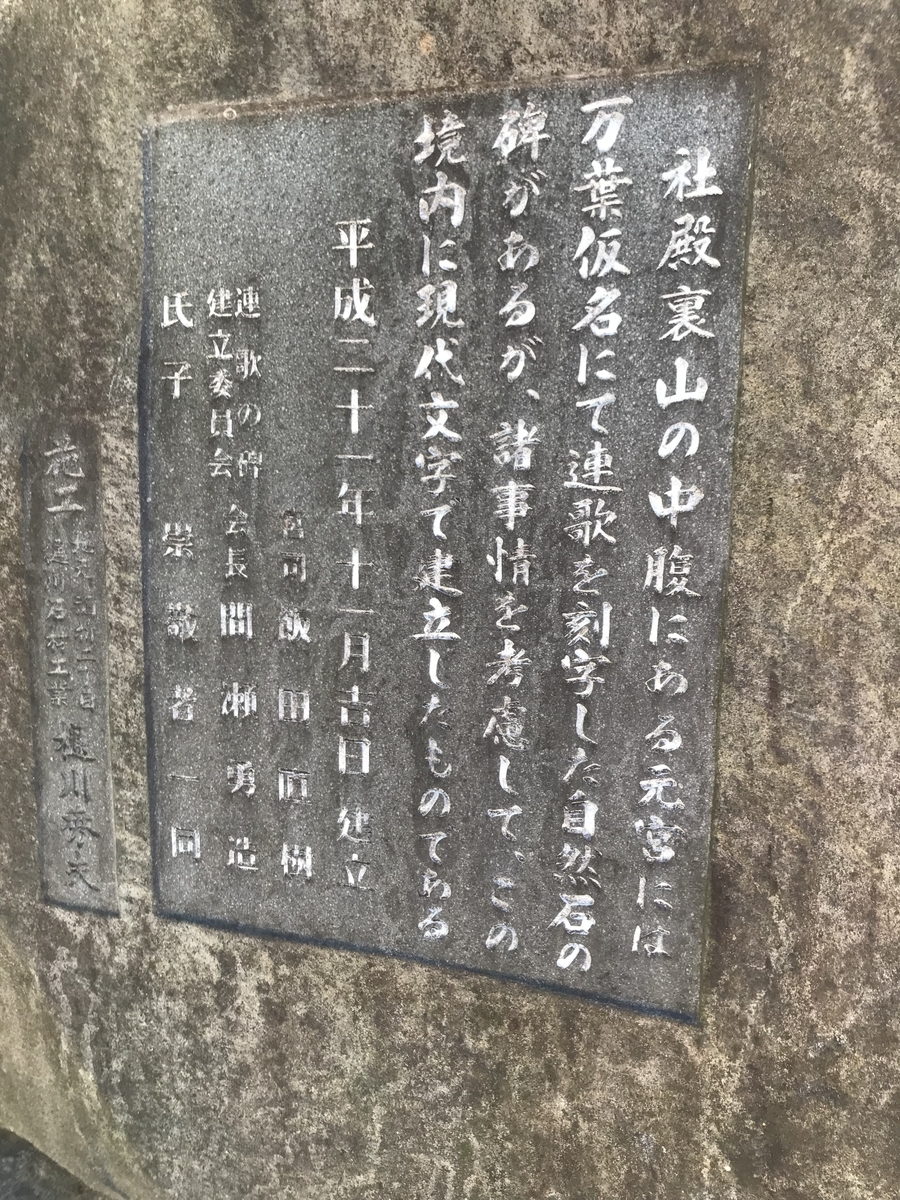 社殿裏山の中腹にある元宮には
万葉仮名にて連歌を刻字した自然石の
碑があるが、諸事情を考慮して、この
境内に現代文字で建立したものである
平成二十一年十一月吉日 建立
宮司 飯田直樹
連歌の碑
建立委員会 会長 間瀬勇造
氏子 崇敬者一同
施工